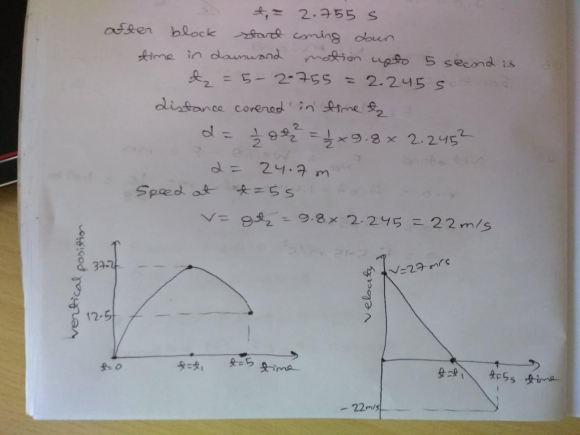 t₁ = 2.755 s
after block start coming down
time in downward motion upto 5 second is
t₂ = 5 - 2.755 = 2.245 s
distance covered in time t₂
d = 1/2 gt₂² = 1/2 × 9.8 × 2.245²
d = 24.7 m
Speed at t = 5 s
V = gt₂ = 9.8 × 2.245 = 22 m/s
vertical position
37.2
12.5
t=0
t=t₁
t=5
time
velocity
V=27 m/s
t=t₁
t=5s
time
-22m/s